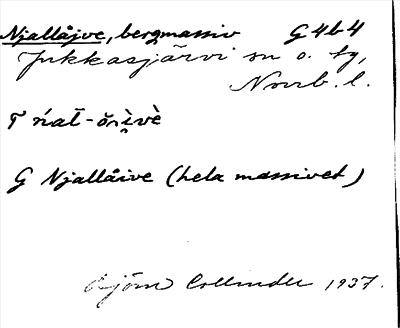 Njallåjve, bergmassiv G4b4
Jukkasjärvi sn o. tg,
Norrb. l.
T
G Njallåive (hela massivet)
Björn Collinder 1937.